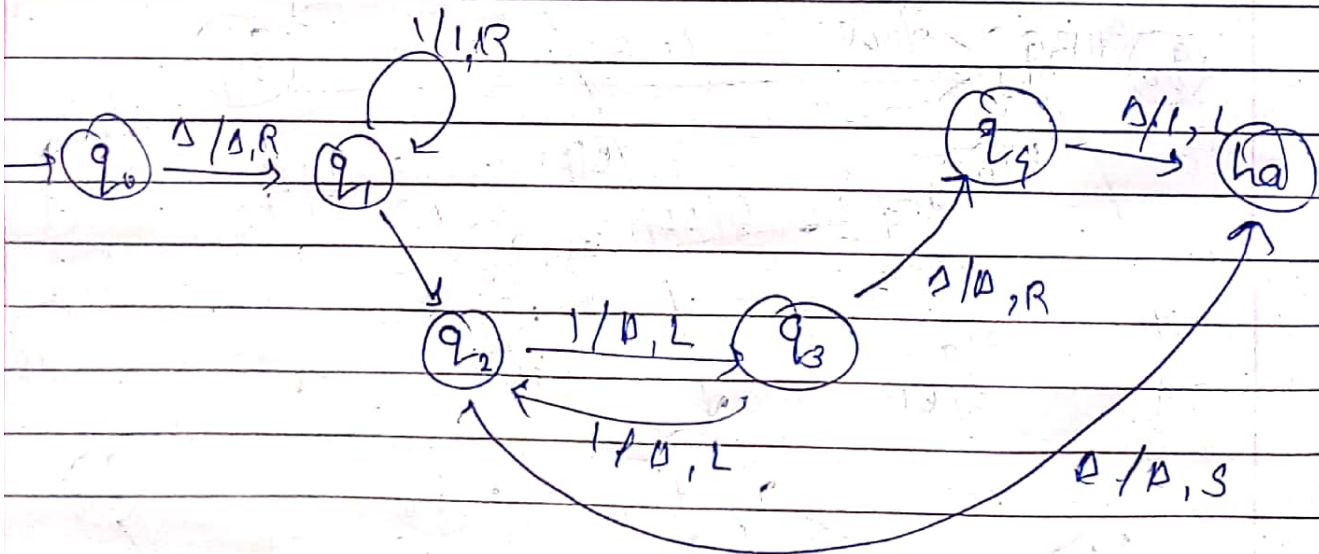 1/1,R
q0 Δ/Δ,R q1
q4 Δ/1,L ha
Δ/Δ,R
q2 1/Δ,L q3
1/Δ,L
Δ/Δ,S